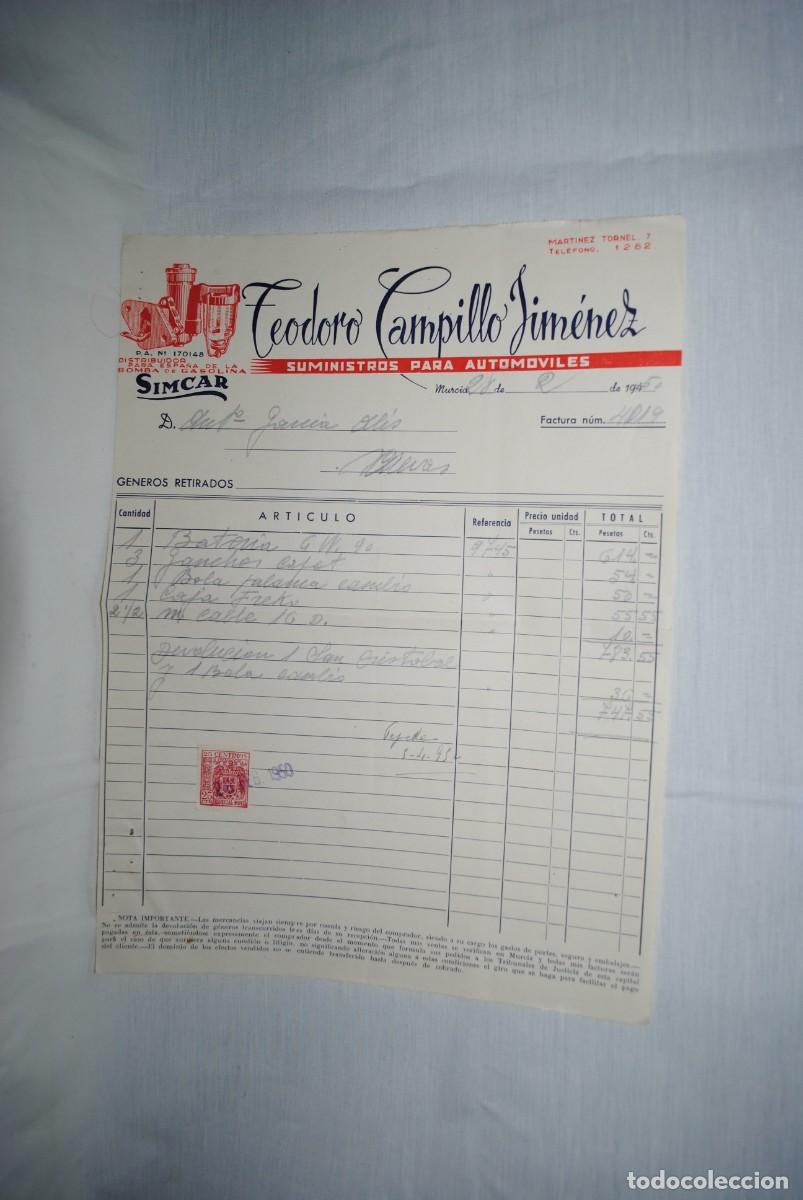 MARTINEZ TORNEL, 7
TELEFONO, 1262
Teodoro Campillo Jiménez
SUMINISTROS PARA AUTOMOVILES
P.A. Nº 170148
DISTRIBUIDOR
PARA ESPAÑA DE LA
BOMBA DE GASOLINA
SIMCAR
Murcia 28 de 2 de 1950
D. Antº Garcia
Factura núm. 4019
GENEROS RETIRADOS
Cantidad ARTICULO Referencia Precio unidad TOTAL
Pesetas Cts. Pesetas Cts.
1 Bateria 6 W. 90 9745 614 =
3 Ganchos capot " 54 =
1 Bola palanca cambio " 50 =
1 Caja Freko "
2 1/2 m cable 16 D. " 55 55
10 =
783 55
Devolucion 1 San Cristobal
y 1 Bola cambio " 36 =
747 55
25 CENTIMOS
1950
NOTA IMPORTANTE.—Las mercancías viajan siempre por cuenta y riesgo del comprador, siendo a su cargo los gastos de portes, seguro y embalajes.—
No se admite la devolución de géneros transcurridos tres días de su recepción.—Todas mis ventas se verifican en Murcia y todas mis facturas serán
pagadas en ésta, sometiéndose expresamente el comprador desde el momento que formula sus pedidos a los Tribunales de Justicia de esta capital
para el caso de que surgiera alguna cuestión o litigio, no significando alteración alguna a estas condiciones el giro que se haga para facilitar el pago
del cliente.—El dominio de los efectos vendidos no se entiende transferido hasta después de cobrado.
todocoleccion